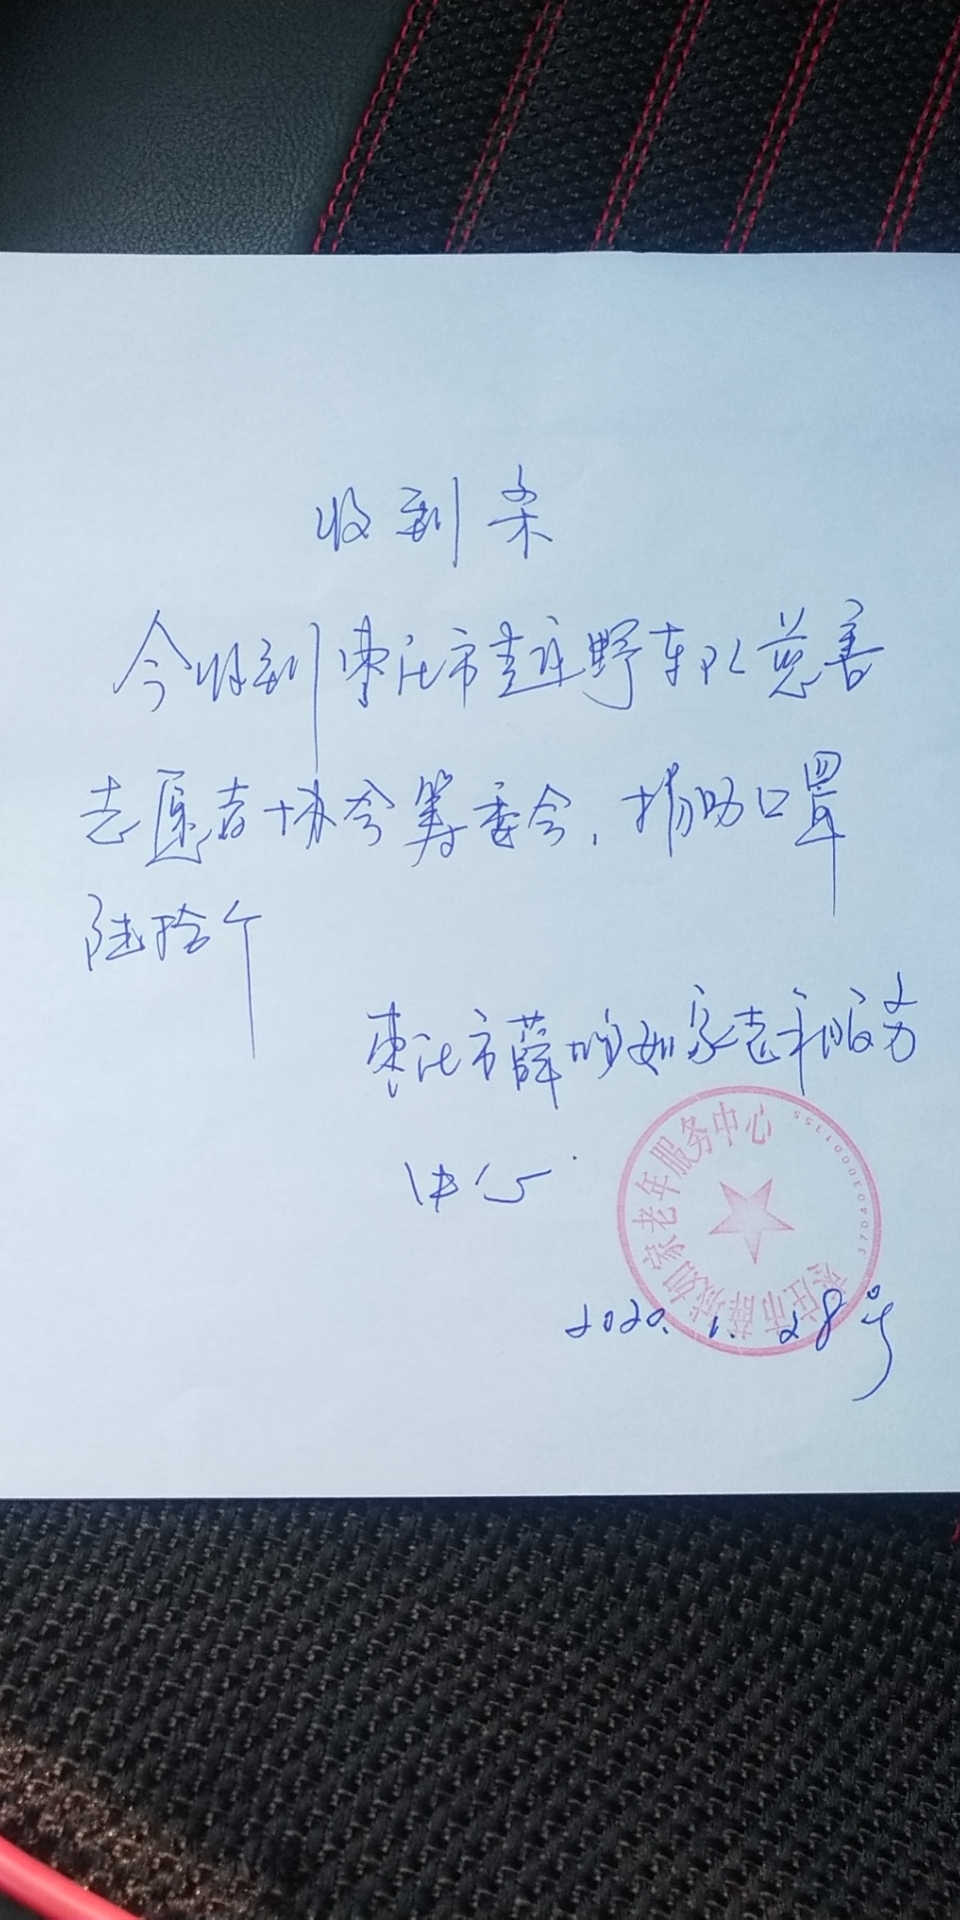 收到条
今收到枣庄市越野车队慈善
志愿者协会筹委会，捐助口罩
陆拾个
枣庄市薛城如家老年服务
中心
枣庄市薛城如家老年服务中心
2020.1.28号